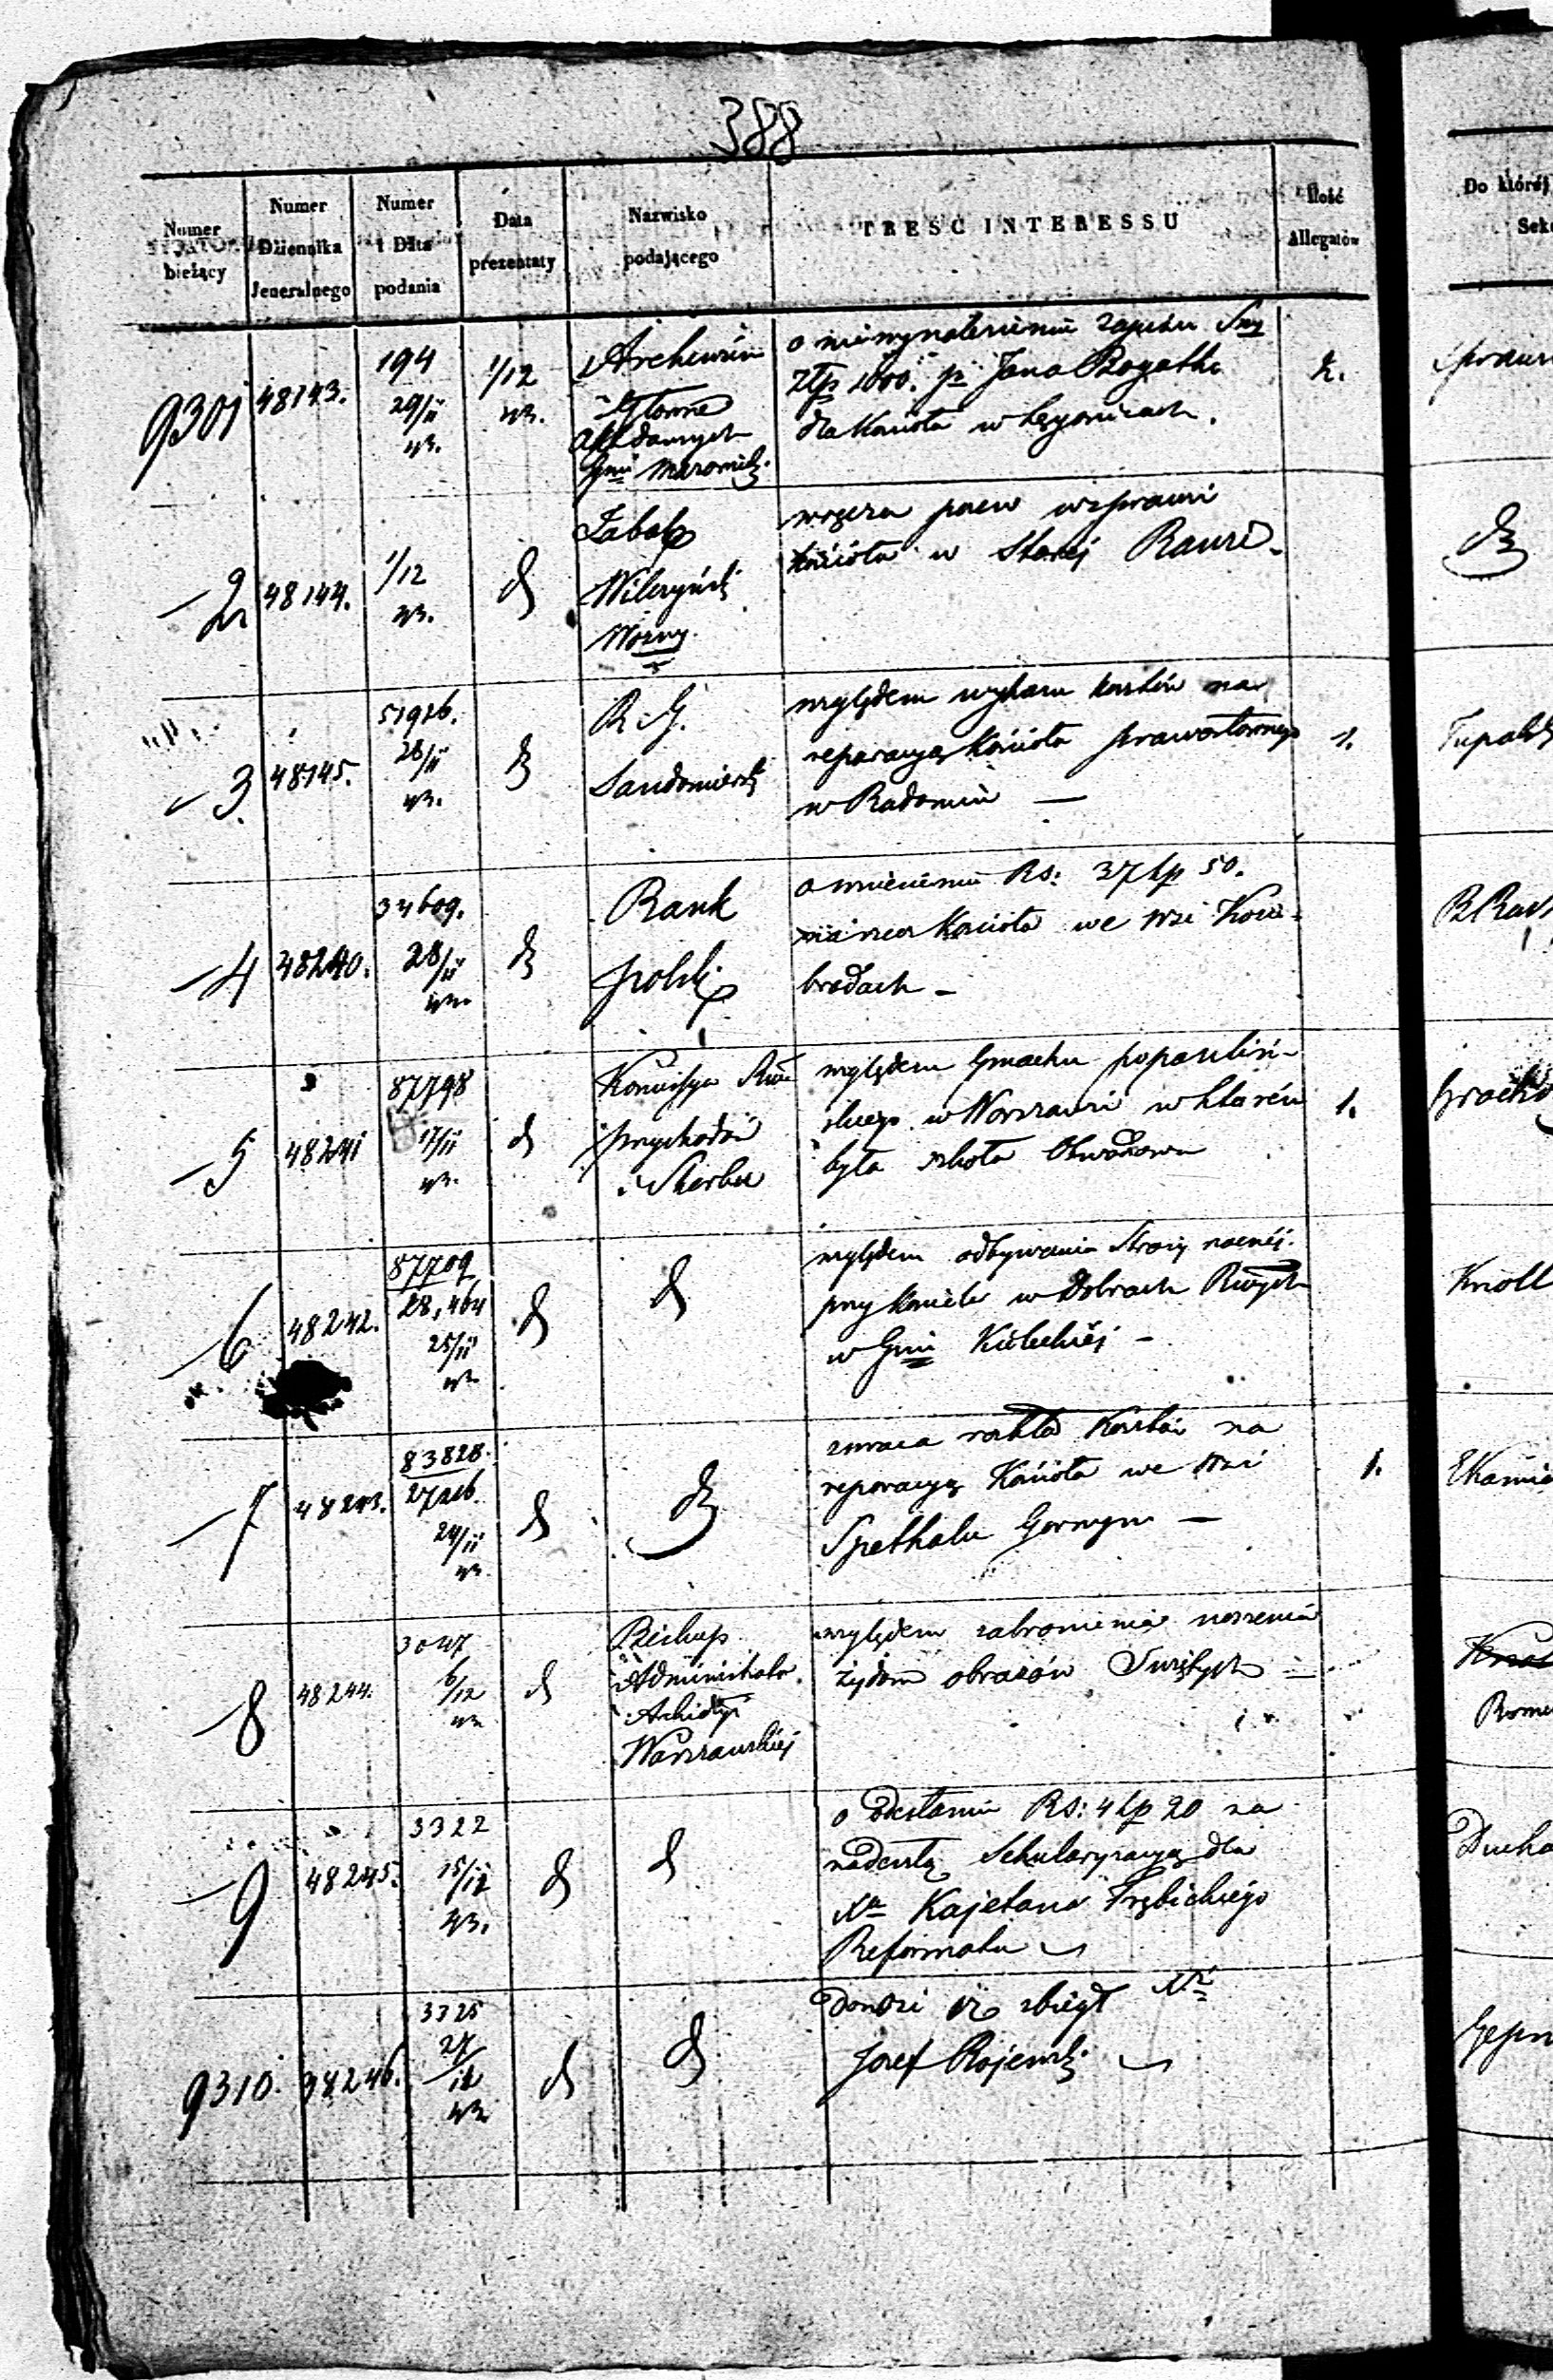 388
Numer bieżący
Numer Dziennika Jeneralnego
Numer i Data podania
Data prezentaty
Nazwisko podającego
TREŚĆ INTERESSU
Ilość Allegatów
Do której
Sek
9301 48143. 194 29/11 1/12
Archiwum
Główne
Akt dawnych
Gnii
o niewynalezieniu zapisu Sumy
Złp 1000. p Jana Bogatko
dla Kościoła w Łęgonicach.
2.
2 48144. 1/12 d
Jakob
Wilczyński
Woźny
wręcza pozew w sprawie
kościoła w Starej Rawie
d
3. 48145. 51926. 28/11 d
R. G.
Sandomierski
względem wykazu kosztów na
reparacyą Kościoła prawosławnego
w Radomiu —
1.
4 48240. 34609. 28/11 d
Bank
polski
o wniesieniu Rs: 37 kp 50.
na rzecz Kościoła we wsi Kozie-
brodach –
5 48241 87798 17/11 d
Komissya Rwa
przychodów
i Skarbu
względem Gmachu popauliń-
skiego w Warszawie w którém
była szkoła Obwodowa
1.
6 48242. 87709 28,464 25/11 d
d
względem odbywania Straży nocnéj
przy kościele w Dobrach Rwych
w Gnii Kieleckiéj –
Knoll
7 48243. 83828. 27226 24/11 d
d
zwraca rozkład Kosztów na
reparacyą Kościoła we Wsi
Spethalu Gornym —
1.
8 48244. 3047 6/12 d
Biskup
Administrator
Archidyi
Warszawskiéj
względem zabronienia noszenia
żydom obrazów Świętych
9 48245. 3322 15/12 d
d
o odesłaniu Rs: 4 kp 20 na
nadeszłą Sekularyzacyą dla
Xa Kajetana Trębickiego
Reformata
9310. 48246. 3325 27/12 d
d
Donosi iż zbiegł X
Jozef Rojewski